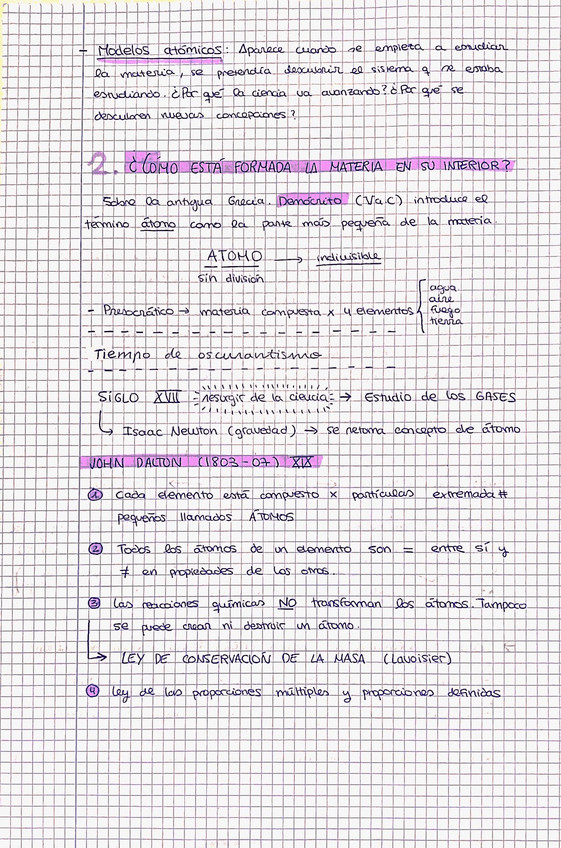 - Modelos atómicos: Aparece cuando se empieza a estudiar
la materia, se pretendía descubrir el sistema q se estaba
estudiando. ¿Por qué la ciencia va avanzando? ¿Por qué se
descubren nuevas concepciones?
2. ¿CÓMO ESTÁ FORMADA LA MATERIA EN SU INTERIOR?
Sobre la antigua Grecia. Demócrito (V a.C) introduce el
término átomo como la parte más pequeña de la materia.
ATOMO → indivisible
sin división
- Presocrático → materia compuesta x 4 elementos
agua
aire
fuego
tierra
Tiempo de oscurantismo
SIGLO XVII resurgir de la ciencia → Estudio de los GASES
↳ Isaac Newton (gravedad) → se retoma concepto de átomo
JOHN DALTON (1803-07) XIX
1 Cada elemento está compuesto x partículas extremada#
pequeños llamados ÁTOMOS
2 Todos los átomos de un elemento son = entre sí y
≠ en propiedades de los otros.
3 Las reacciones químicas NO transforman los átomos. Tampoco
se puede crear ni destruir un átomo.
↳ LEY DE CONSERVACIÓN DE LA MASA (Lavoisier)
4 Ley de las proporciones múltiples y proporciones definidas